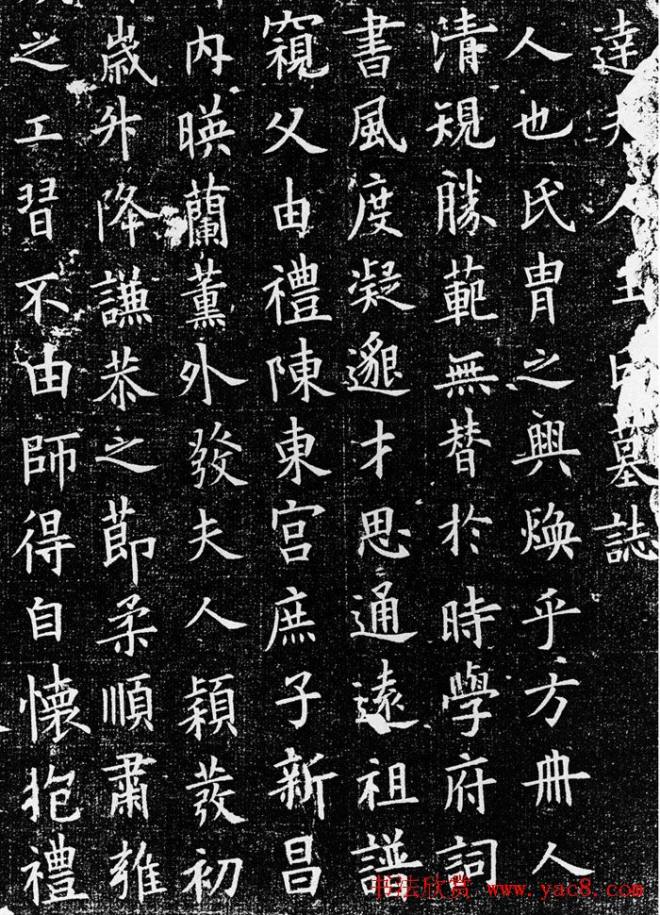 達夫人王墓誌
人也氏胄之興煥乎方冊人
清規勝範無替於時學府詞
書風度凝邈才思通遠祖
窺父由禮陳東宮庶子新昌
内暎蘭薰外發夫人穎發初
歲升降謙恭之節柔順肅雍
之工習不由師得自懷抱禮
书法欣赏 www.yac8.com